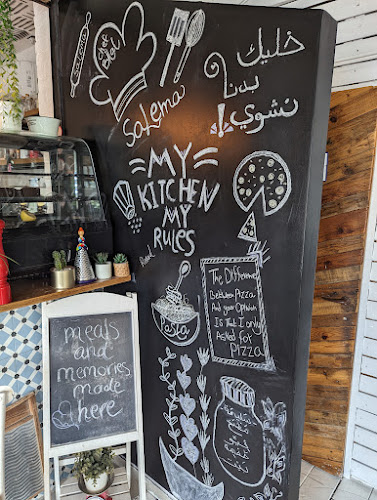 SaLema
خليك
بدنا
نشوي!
MY
KITCHEN
MY
RULES
The Difference
Between Pizza
And your Opinion
Is That I only
Asked for
Pizza
Pasta
meals
and
memories
made
here